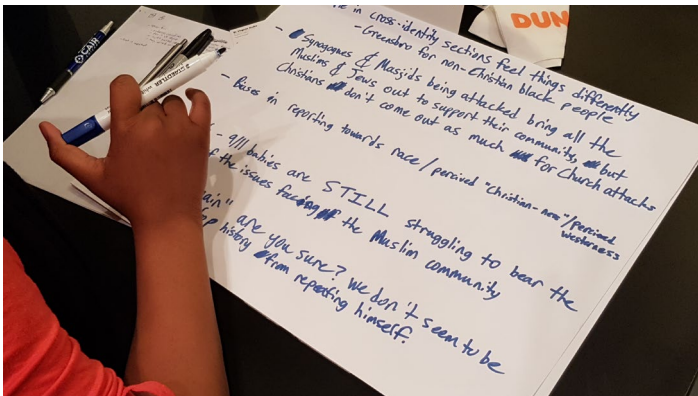 in cross-identity sections feel things differently
- Greensboro for non-Christian black people
- Synagogues & Masjids being attacked bring all the
Muslims & Jews out to support their community, but
Christians don't come out as much for Church attacks
- Biases in reporting towards race/percived "Christian-ness"/percived
westerness
- 9/11 babies are STILL struggling to bear the
the issues facing the Muslim community
are you sure? We don't seem to be
history from repeating himself.
DUN
CAIR
STAEDTLER